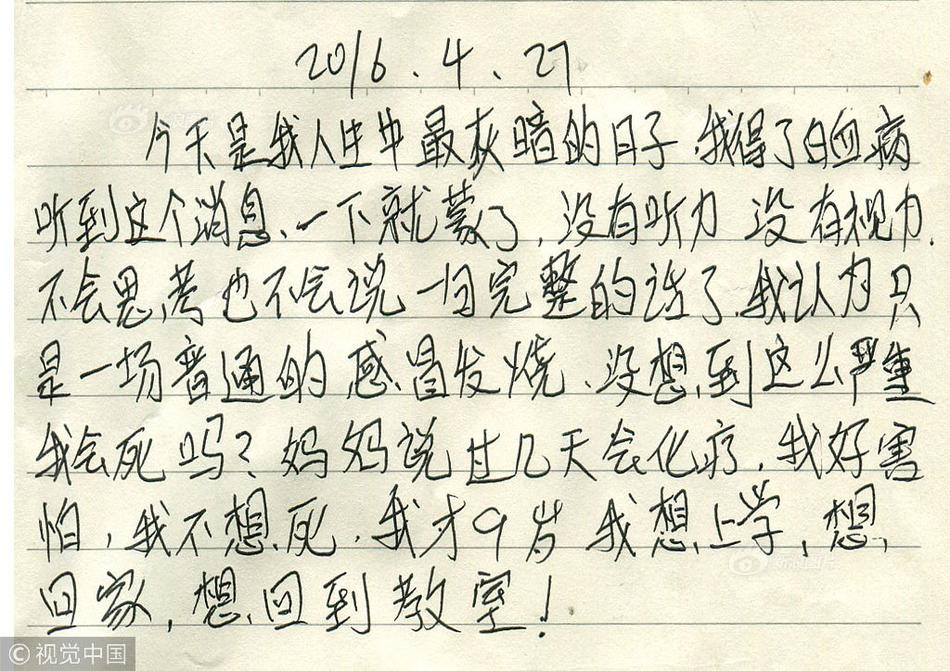 2016.4.27
今天是我人生中最灰暗的日子.我得了白血病
听到这个消息、一下就蒙了,没有听力 没有视力.
不会思考也不会说一句完整的话了.我认为只
是一场普通的感冒发烧、没想到这么严重
我会死吗?妈妈说过几天会化疗.我好害
怕,我不想死.我才9岁 我想上学,想
回家,想回到教室!
©视觉中国